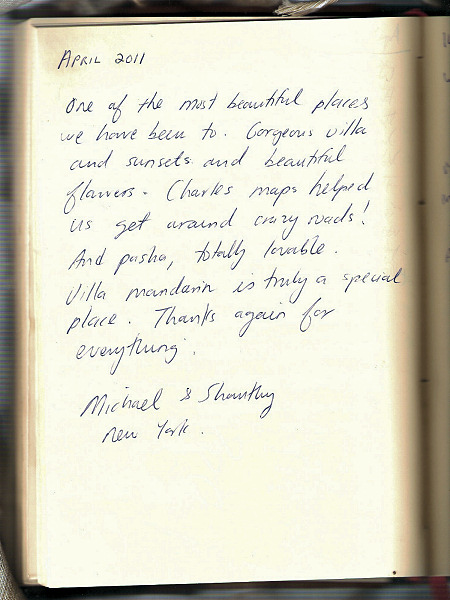 APRIL 2011
One of the most beautiful places
we have been to. Gorgeous villa
and sunsets and beautiful
flowers. Charles maps helped
us get around crazy roads!
And pasha, totally lovable.
Villa mandarin is truly a special
place. Thanks again for
everything.
Michael & Shanthy
New York.